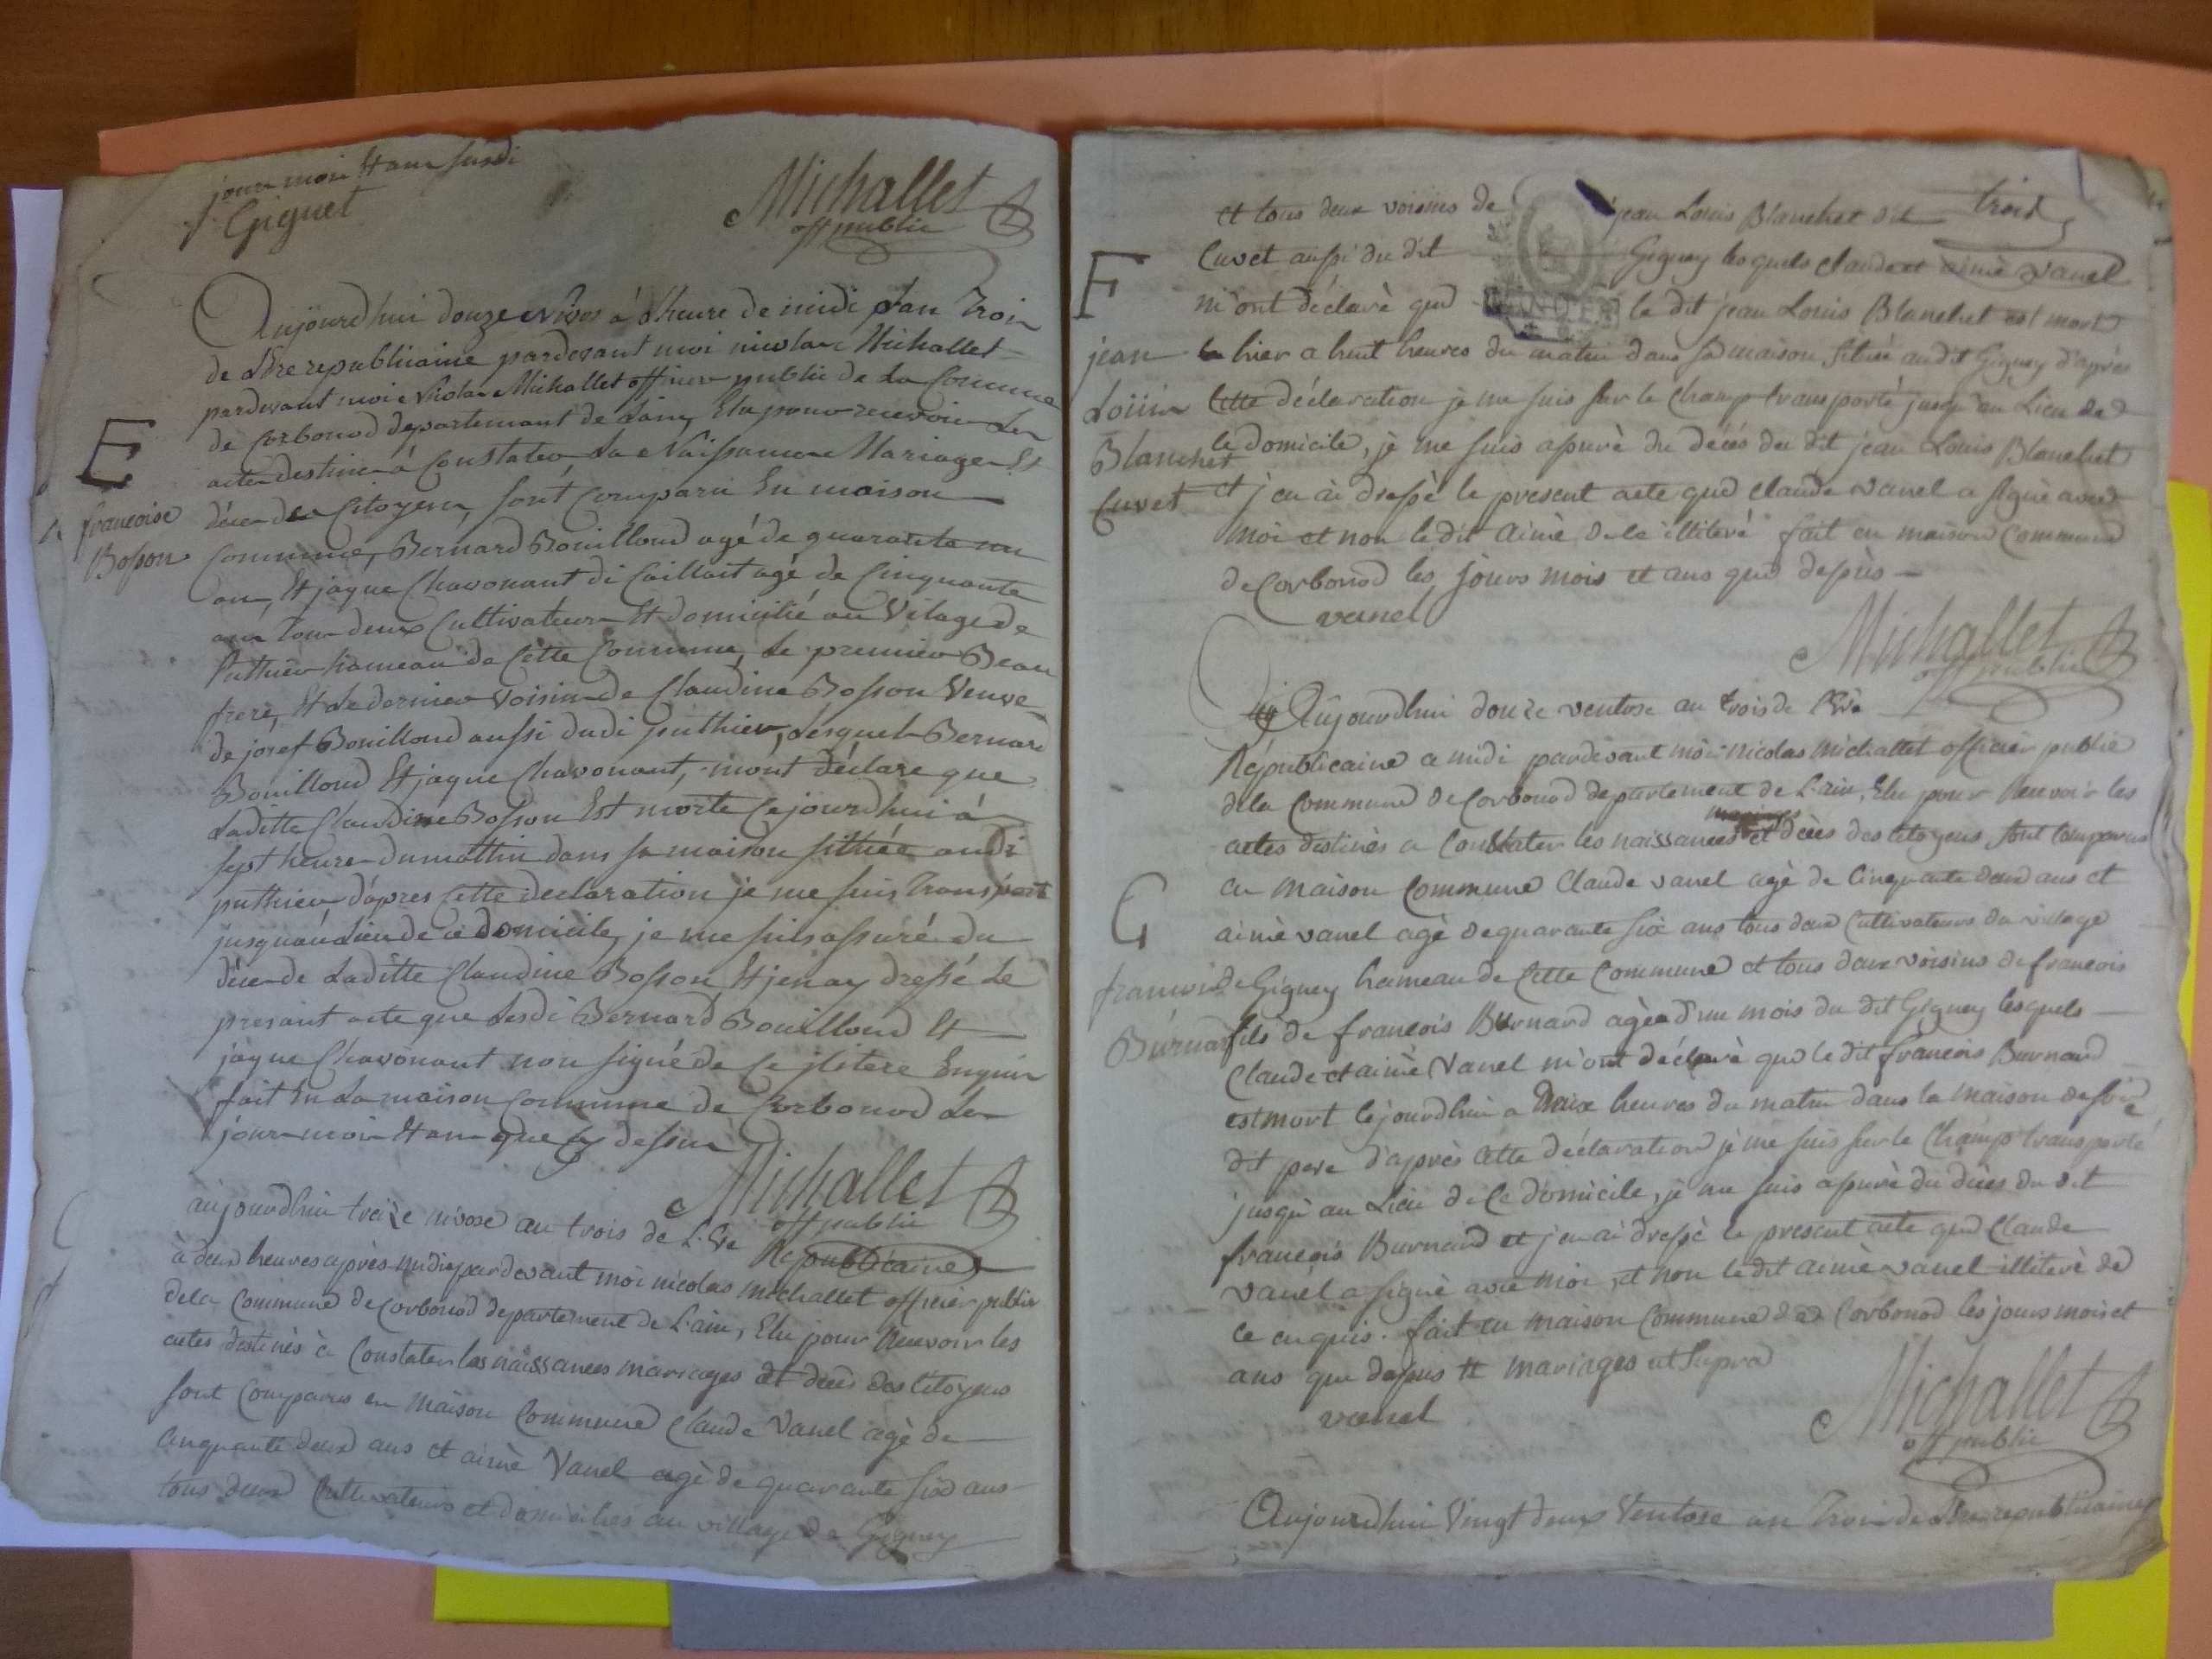 jour moi et an susdi
f. Giguet
Michallet
off public
Aujourdhui douze Nivos á l'heure de midi l'an Trois
de l'Ere republicaine pardevant moi nicolas Michallet
pardevant moi Nicolas Michallet officier public de la Comune
de Corbonod departemant de Lain, Elu pour recevoir les
acte destiné á Constater la Naissance Mariage et
E
déces des Citoyens, sont Comparu En maison
francoise
Bosson
Commune, Bernard Bouilloud agé de quarante un
ans, Et jaque Chavonant di Caillait agé de Cinquante
ans Tous deux Cultivateurs Et domicilié au Vilage de
puthier hameau de Cette Commune, Le premier Beau
frere, Et le dernier voisin de Claudine Bosson Veuve
de josef Bouilloud aussi dudi puthier, lesquel Bernard
Bouilloud Et jaque Chavonant, mont déclare que
Laditte Claudine Bosson Est morte Cejourdhui á
sept heure du mattin dans sa maison sittuée audi
puthier d'apres Cette declaration je me suis Transporté
jusquau Lieu de ce domicile, je me suis assuré du
déces de Laditte Claudine Bosson Et jenay dressé Le
presant acte que Lesdi Bernard Bouilloud Et
jaque Chavonant non signé de Ce ilitere Enquis
fait En La maison Commune de Corbonod Les
jour moi Et an que cy dessu
Michallet
off public
aujourdhui treize nivose an trois de L'Ere Republicaine
à deux heures après midi pardevant moi nicolas michallet officier public
dela Commune de Corbonod departement de L'ain, Elu pour Recevoir les
actes destinés à Constater les naissances mariages et décès des Citoyens
sont Comparus en maison Commune Claude Vanel agè de
cinquante deux ans et aimè Vanel agè de quarante six ans
tous deux Cultivateurs et domiciliés au village de Gigney
trois
et tous deux voisins de jean Louis Blanchet dit
Cuvet aussi du dit Gigney lesquels claude et aimè vanel
F
m'ont déclarè que le dit jean Louis Blanchet est mort
jean
hier a huit heures du matin dans sa maison située audit Gigney d'après
Loüis
Cette déclaration je me suis sur le Champ transporté jusqu'au Lieu de
Blanchet
le domicile, je me suis assurè du décés du dit jean Louis Blanchet
Cuvet
et j'en ai dressé le present acte que claude vanel a signè avec
moi et non le dit aimè de ce illiterè fait en maison Commune
de Corbonod les jours mois et ans que dessus
vanel
Michallet
off public
Aujourdhui douze ventose an trois de l'Ere
Républicaine a midi pardevant moi nicolas michallet officier public
dela Commune de Corbonod departement de L'ain, Elu pour Recevoir les
mariages
actes destinés a Constater les naissances et décès des Citoyens sont Comparus
en maison Commune Claude vanel agè de cinquante deux ans et
G
aimè vanel agè de quarante six ans tous deux Cultivateurs du village
francois
de Gigney hameau de Cette Commune et tous deux voisins de francois
Burnard
fils de francois Burnard agée d'un mois du dit Gigney lesquels
Claude et aimè Vanel m'ont déclarè que le dit francois Burnard
est mort cejourdhui a deux heures du matin dans la maison de son
dit pere d'après Cette déclaration je me suis sur le Champ transporté
jusqu'au Lieu de Ce domicile, je me suis assurè du décès du dit
francois Burnard et j'en ai dressè le present acte que Claude
vanel a signè avec moi, et non le dit aimè vanel illiterè de
ce enquis. fait en maison Commune de Corbonod les jours mois et
ans que dessus # mariages ut supra
vanel
Michallet
off public
Aujourdhui Vingt deux Ventose an Trois de L'Ere republicaine